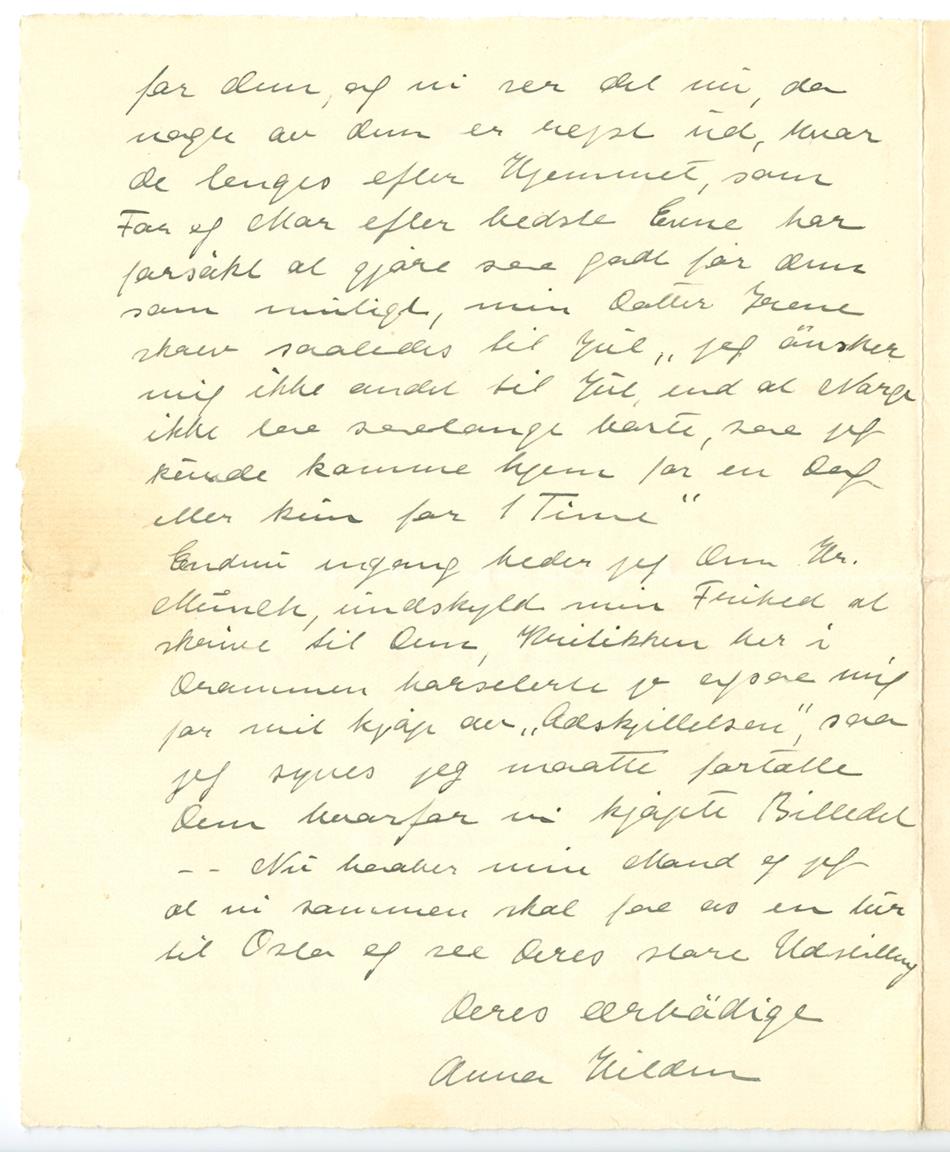 for dem, og vi ser det nu, da
nogle av dem er rejst ud, hvor
de lenges efter Hjemmet, som
Far og Mor efter bedste Evne har
forsökt at gjöre saa godt for dem
som muligt, min Datter Irene
skrev saaledes til Jul „jeg önsker
mig ikke andet til Jul, end at Norge
ikke laa saalangt borte, saa jeg
kunde komme hjem for en Dag
eller kun for 1 Time“
Endnu engang beder jeg Dem Hr.
Munch, undskyld min Frihed at
skrive til Dem, Kritikken her i
Drammen harselerte jo ogsaa mig
for mit kjöp av „Adskjillelsen“, saa
jeg synes jeg maatte fortälle
Dem hvorfor vi kjöpte Billedet
-- Nu haaber min Mand og jeg
at vi sammen skal faa os en tur
til Oslo og see Deres store Udstilling
Deres ærbödige
Anna Hilden